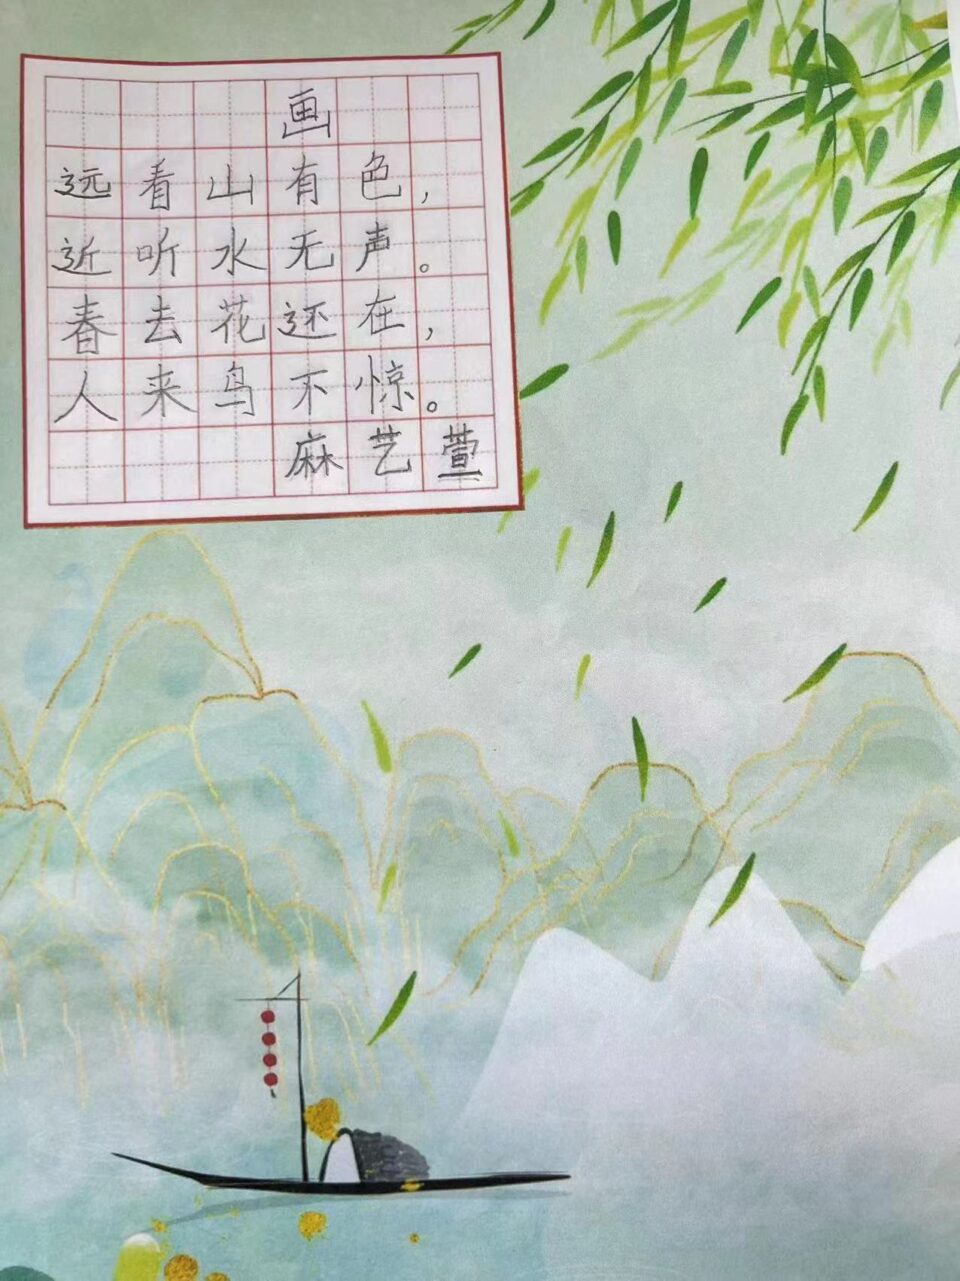 画
远看山有色，
近听水无声。
春去花还在，
人来鸟不惊。
麻艺萱